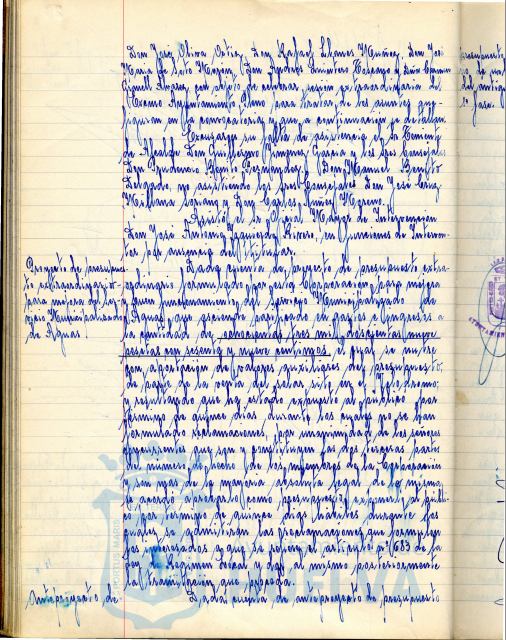 Don José Oliva Ortiz, Don Rafael Llanos Muñoz, Don José
María de Soto Don Andrés Quintero y Don
con objeto de celebrar sesión extraordinaria del
Excmo Ayuntamiento Pleno para tratar de los asuntos que
figuran en la convocatoria y que a continuación se detallan.
Excusaron su falta de asistencia el Teniente
de Alcalde Don Guillermo García y los Sres Concejales
Don Don Manuel Benito
Delgado, no asistiendo los Sres Concejales Don José
Soriano y Don Carlos Núñez Moreno.
Asistió el Oficial Mayor de Intervención
Don José Antonio Izquierdo en funciones de Interven-
tor por ausencia del titular.
Proyecto de presupues-
to extraordinario
para mejora del Ser-
vicio Municipalizado
de Aguas
Dada cuenta del proyecto de presupuesto extra-
ordinario formulado por esta Corporación para mejora
y buen funcionamiento del Servicio Municipalizado de
Aguas, que asciende nivelado en gastos e ingresos a
la cantidad de ochocientas tres mil doscientas nueve
pesetas con sesenta y nueve céntimos el cual se nutre
con aportación de valores auxiliares del presupuesto,
de parte de la venta del solar sito en el Hipódromo;
y resultando que ha estado expuesto al público por
término de quince días durante los cuales no se han
formulado reclamaciones, por unanimidad de los señores
que son y constituyen las dos terceras partes
del número de hecho de los miembros de la Corporación
y en más de la mayoría absoluta legal de los mismos,
se acordó aprobarlo como presupuesto, exponerlo al públi-
co por término de quince días hábiles durante los
cuales se admitirán las reclamaciones que formulen
los interesados y que se refiere el artículo 683 de la
Ley de Régimen Local y dar al mismo posteriormente
la tramitación que proceda.
Anteproyecto de
Dada cuenta de anteproyecto de presupuesto
HUELVA